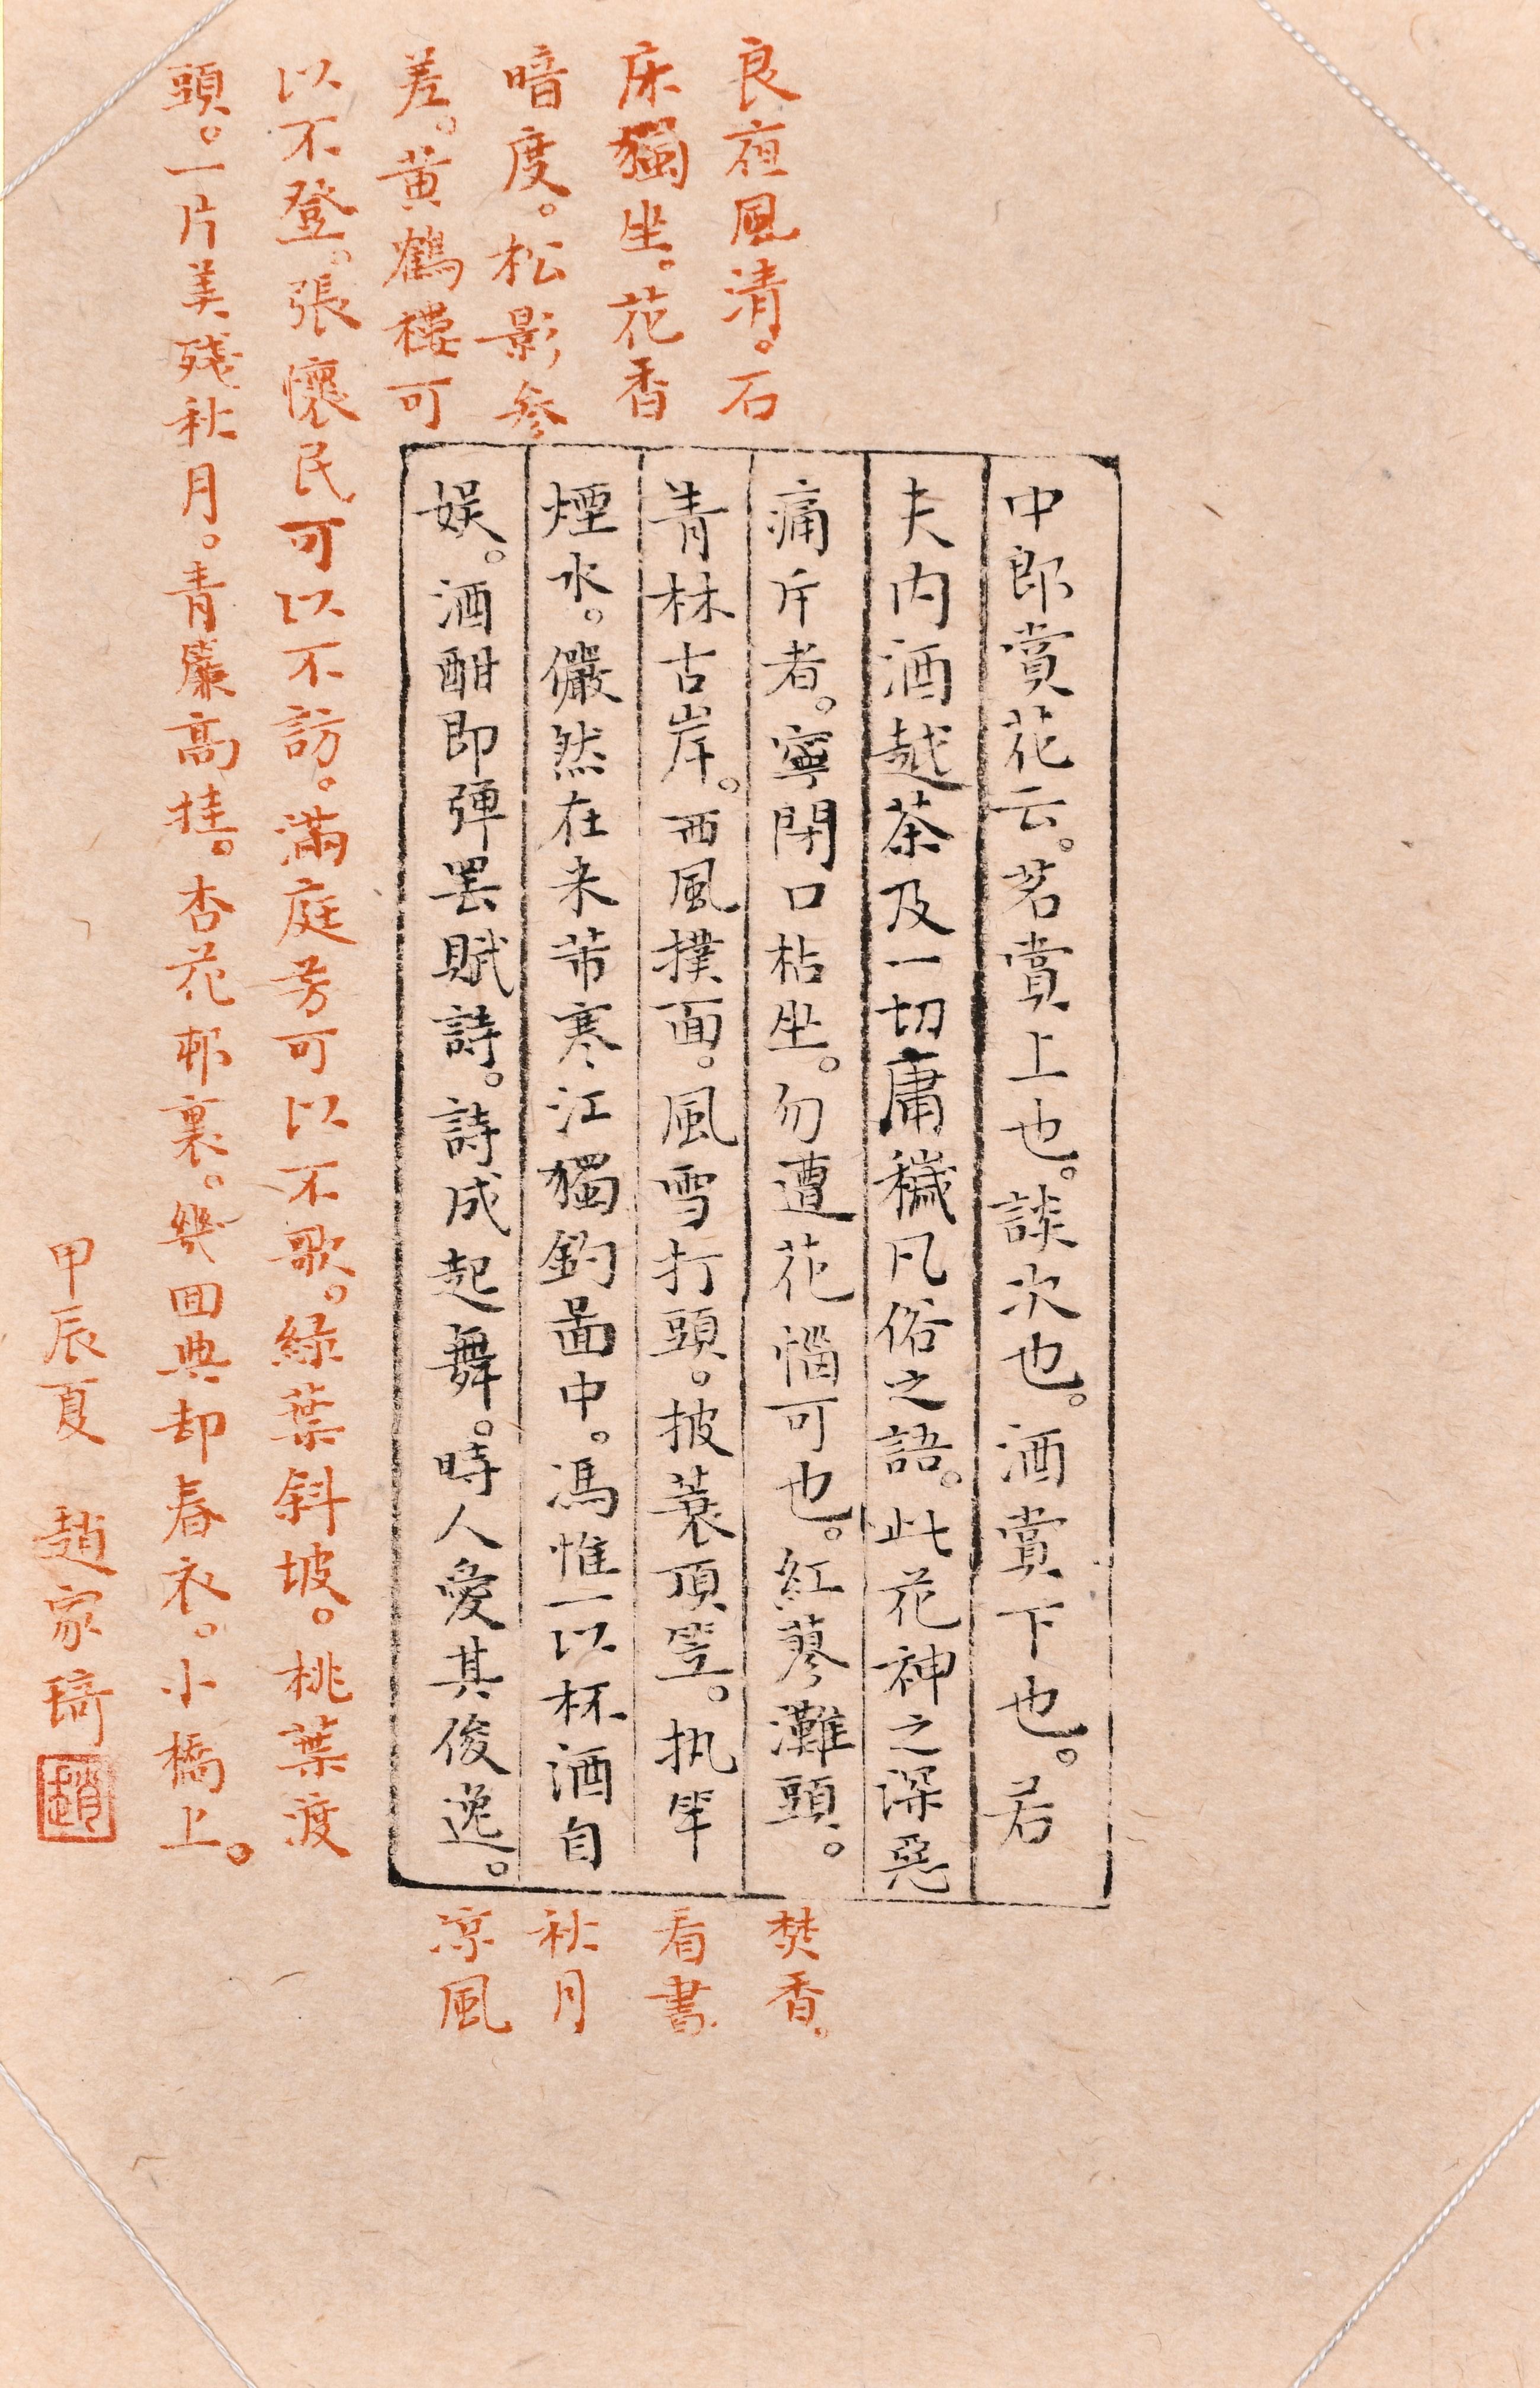 中郎賞花云。茗賞上也。談次也。酒賞下也。若
夫内酒越茶及一切庸穢凡俗之語。此花神之深惡
痛斥者。寧閉口枯坐。勿遭花惱可也。紅蓼灘頭。
青林古岸。西風撲面。風雪打頭。披蓑頂笠。執竿
煙水。儼然在米芾寒江獨釣啚中。馮惟一以杯酒自
娱。酒酣即弾罢賦詩。詩成起舞。時人愛其俊逸。
良夜風清。石
床獨坐。花香
暗度。松影参
差。黄鶴樓可
以不登。張懷民可以不訪。滿庭芳可以不歌。緑葉斜坡。桃葉渡
頭。一片美殘秋月。青簾高挂。杏花邨裏。幾回典却春衣。小橋上。
焚香。
看書
秋月
涼風
甲辰夏 趙家琦
趙